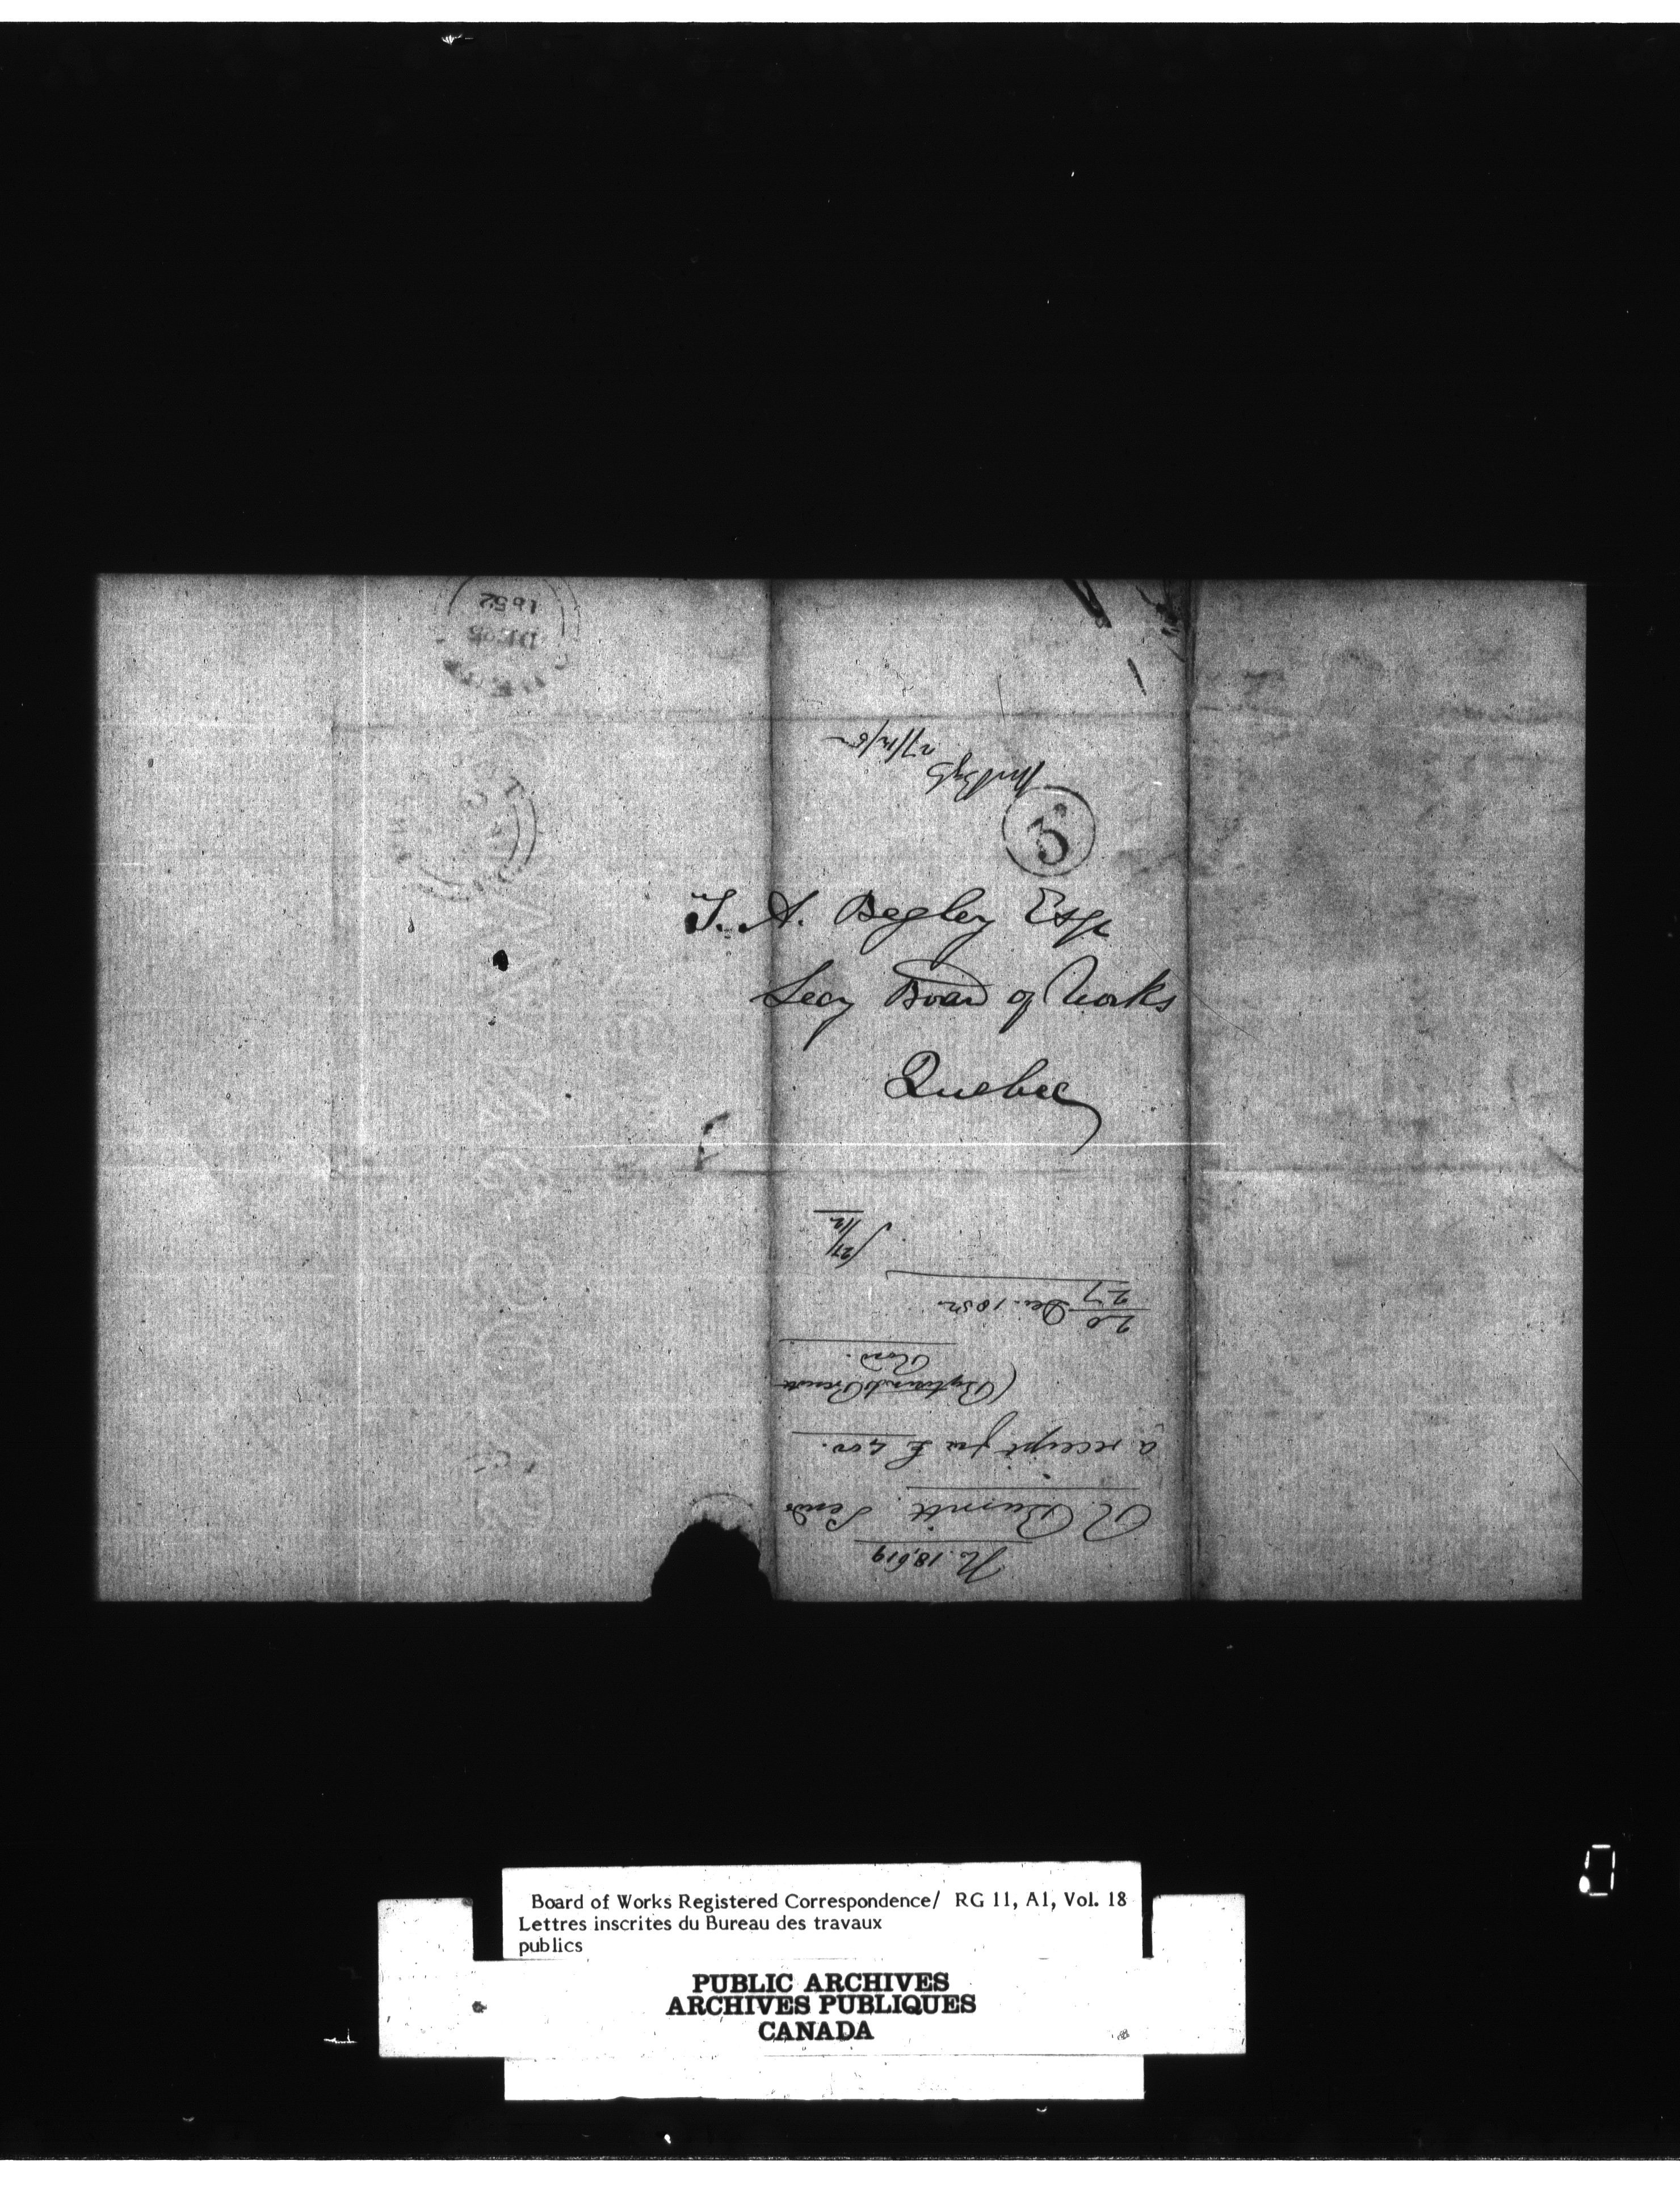 1852
3
T. A. Begley Esqr
Secy Board of Works
Quebec
N. 18,619
R. Burritt Sends
a receipt for £
(Bytown & Prescott
Road.
20
27 Dec. 1852
27/12
Board of Works Registered Correspondence/ RG 11, A1, Vol. 18
Lettres inscrites du Bureau des travaux
publics
PUBLIC ARCHIVES
ARCHIVES PUBLIQUES
CANADA